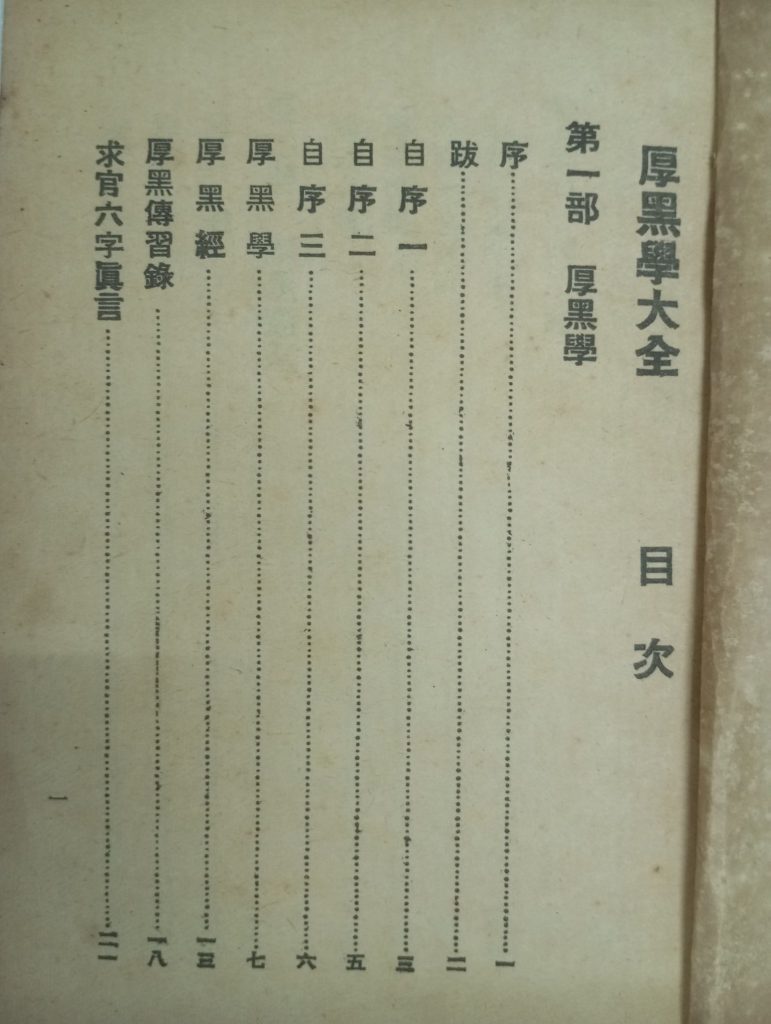 厚黑學大全 目次
第一部 厚黑學
序…………一
跋…………二
自序一…………三
自序二…………五
自序三…………六
厚黑學…………七
厚黑經…………一三
厚黑傳習錄…………一八
求官六字眞言…………二一
一